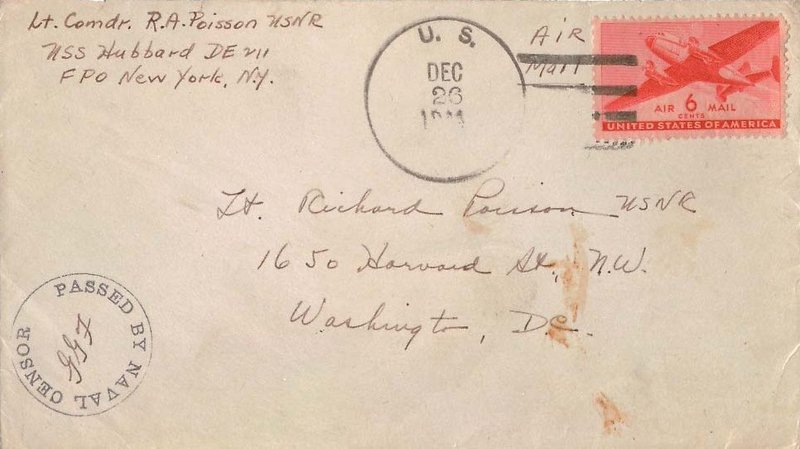 Lt. Comdr. R.A. Poisson USNR
USS Hubbard DE 211
FPO New York, N.Y.
U. S.
DEC
26
Air
Mail
AIR 6 MAIL
CENTS
UNITED STATES OF AMERICA
Lt. Richard Poisson USNR
1650 Harvard St., N.W.
Washington, D.C.
PASSED BY NAVAL CENSOR